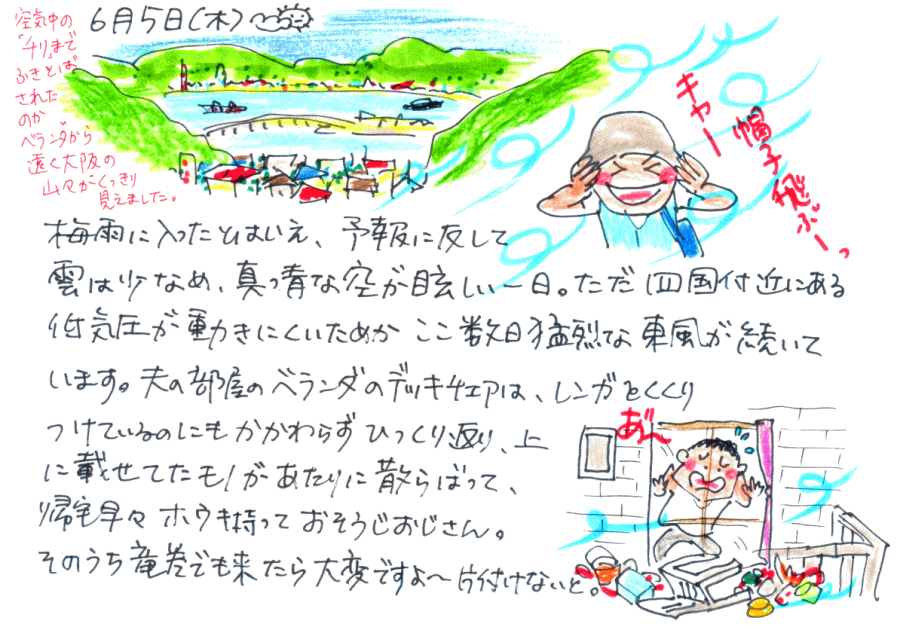 6月5日(木)
空気中の
「チリ」まで
ふきとば
された
のか
ベランダから
遠く大阪の
山々がくっきり
見えました。
キャー
帽子飛ぶーっ
梅雨に入ったとはいえ、予報に反して
雲は少なめ、真っ青な空が眩しい一日。ただ四国付近にある
低気圧が動きにくいためか ここ数日猛烈な東風が続いて
います。夫の部屋のベランダのデッキチェアは、レンガとくくり
つけているのにもかかわらずひっくり返り、上
に載せてたモノがあたりに散らばって、
帰宅早々ホウキ持っておそうじおじさん。
そのうち竜巻でも来たら大変ですよ〜片付けないと。
あ゛〜